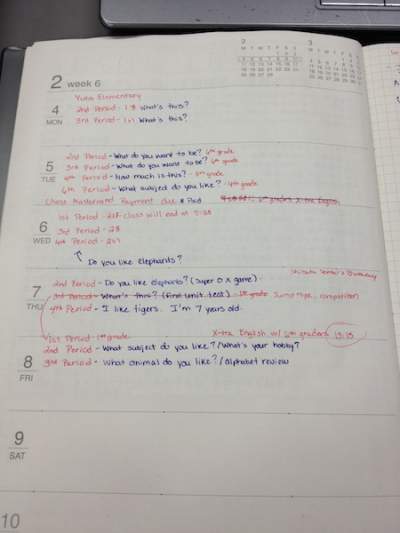 2 week 6
4 MON
Yuba Elementary
2nd Period - 1-3 What's this?
3rd Period - 1-1 What's this?
5 TUE
2nd Period - What do you want to be? 6th grade
3rd Period - What do you want to be? 6th grade
4th Period - How much is this? - 5th grade
6th Period - What subject do you like? - 4th grade
Chase Mastercard Payment due * Paid
6 WED
1st Period - 2-2 class will end at
3rd Period - 2-3
4th Period - 2-1
Do you like elephants?
7 THU
Birthday
2nd Period - Do you like elephants? (Super OX game)
3rd Period - What's this? (Final unit test) - 1st grade Jump rope competition
4th Period - I like tigers. I'm 7 years old.
8 FRI
1st Period - 1st grade
X-tra English w/ 6th graders 15:15
2nd Period - What subject do you like? / What's your hobby?
3rd Period - What animal do you like? / Alphabet review
9 SAT
10